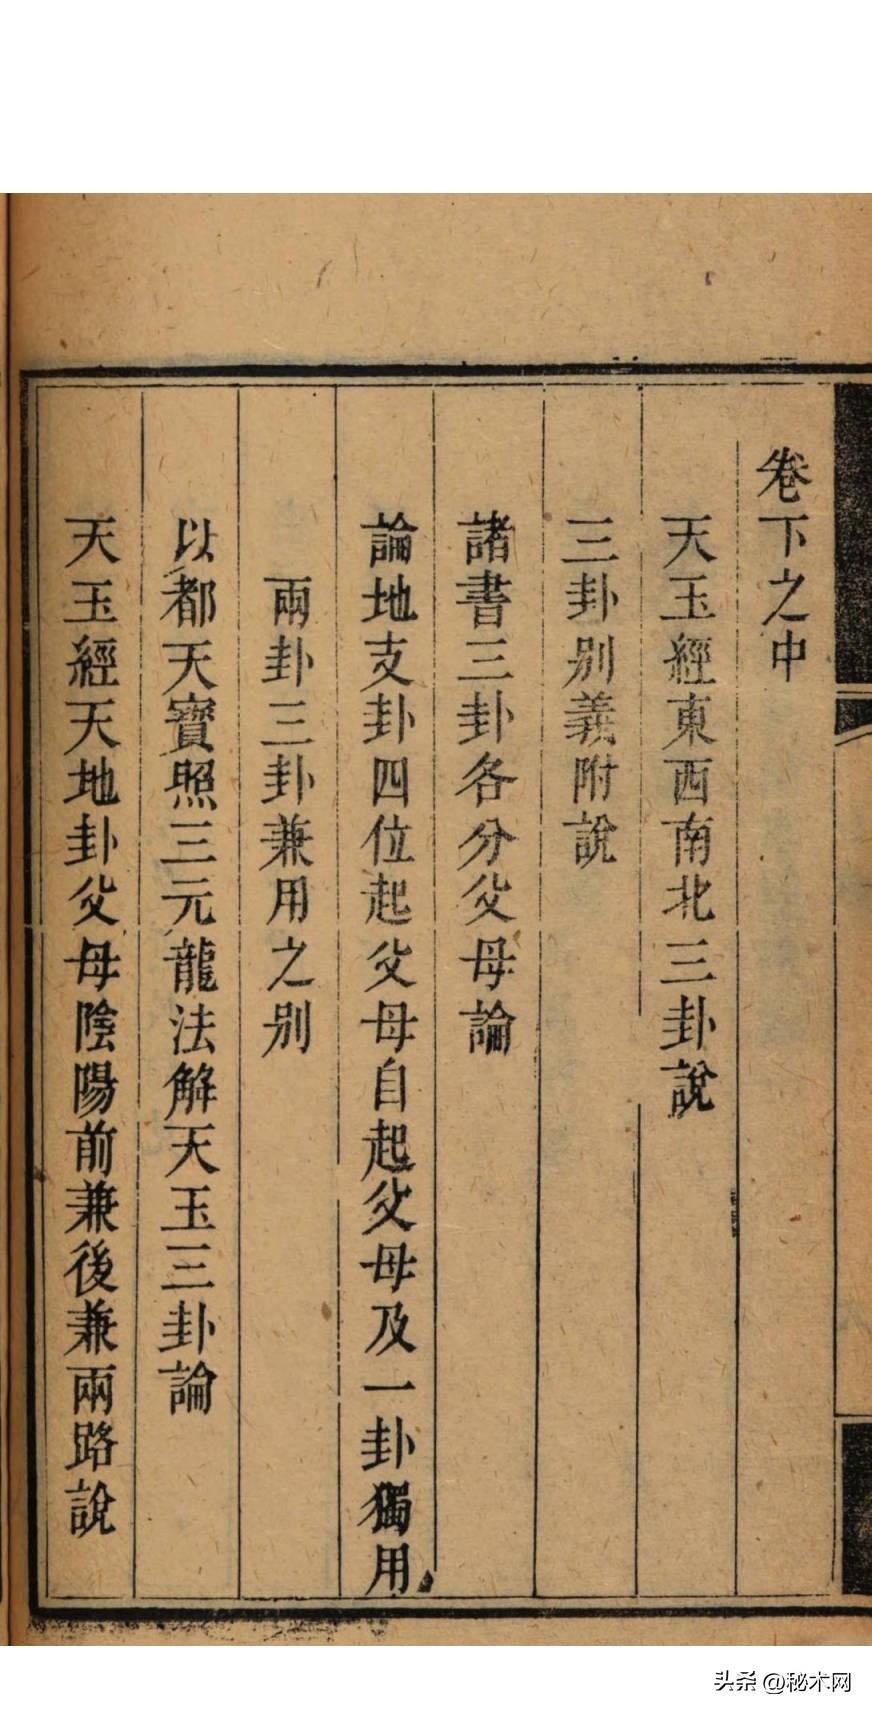 卷下之中
天玉經東西南北三卦說
三卦别義附說
諸書三卦各分父母論
論地支卦四位起父母自起父母及一卦獨用
兩卦三卦兼用之别
以都天寶照三元龍法解天玉三卦論
天玉經天地卦父母陰陽前兼後兼兩路說
头条 @秘术网